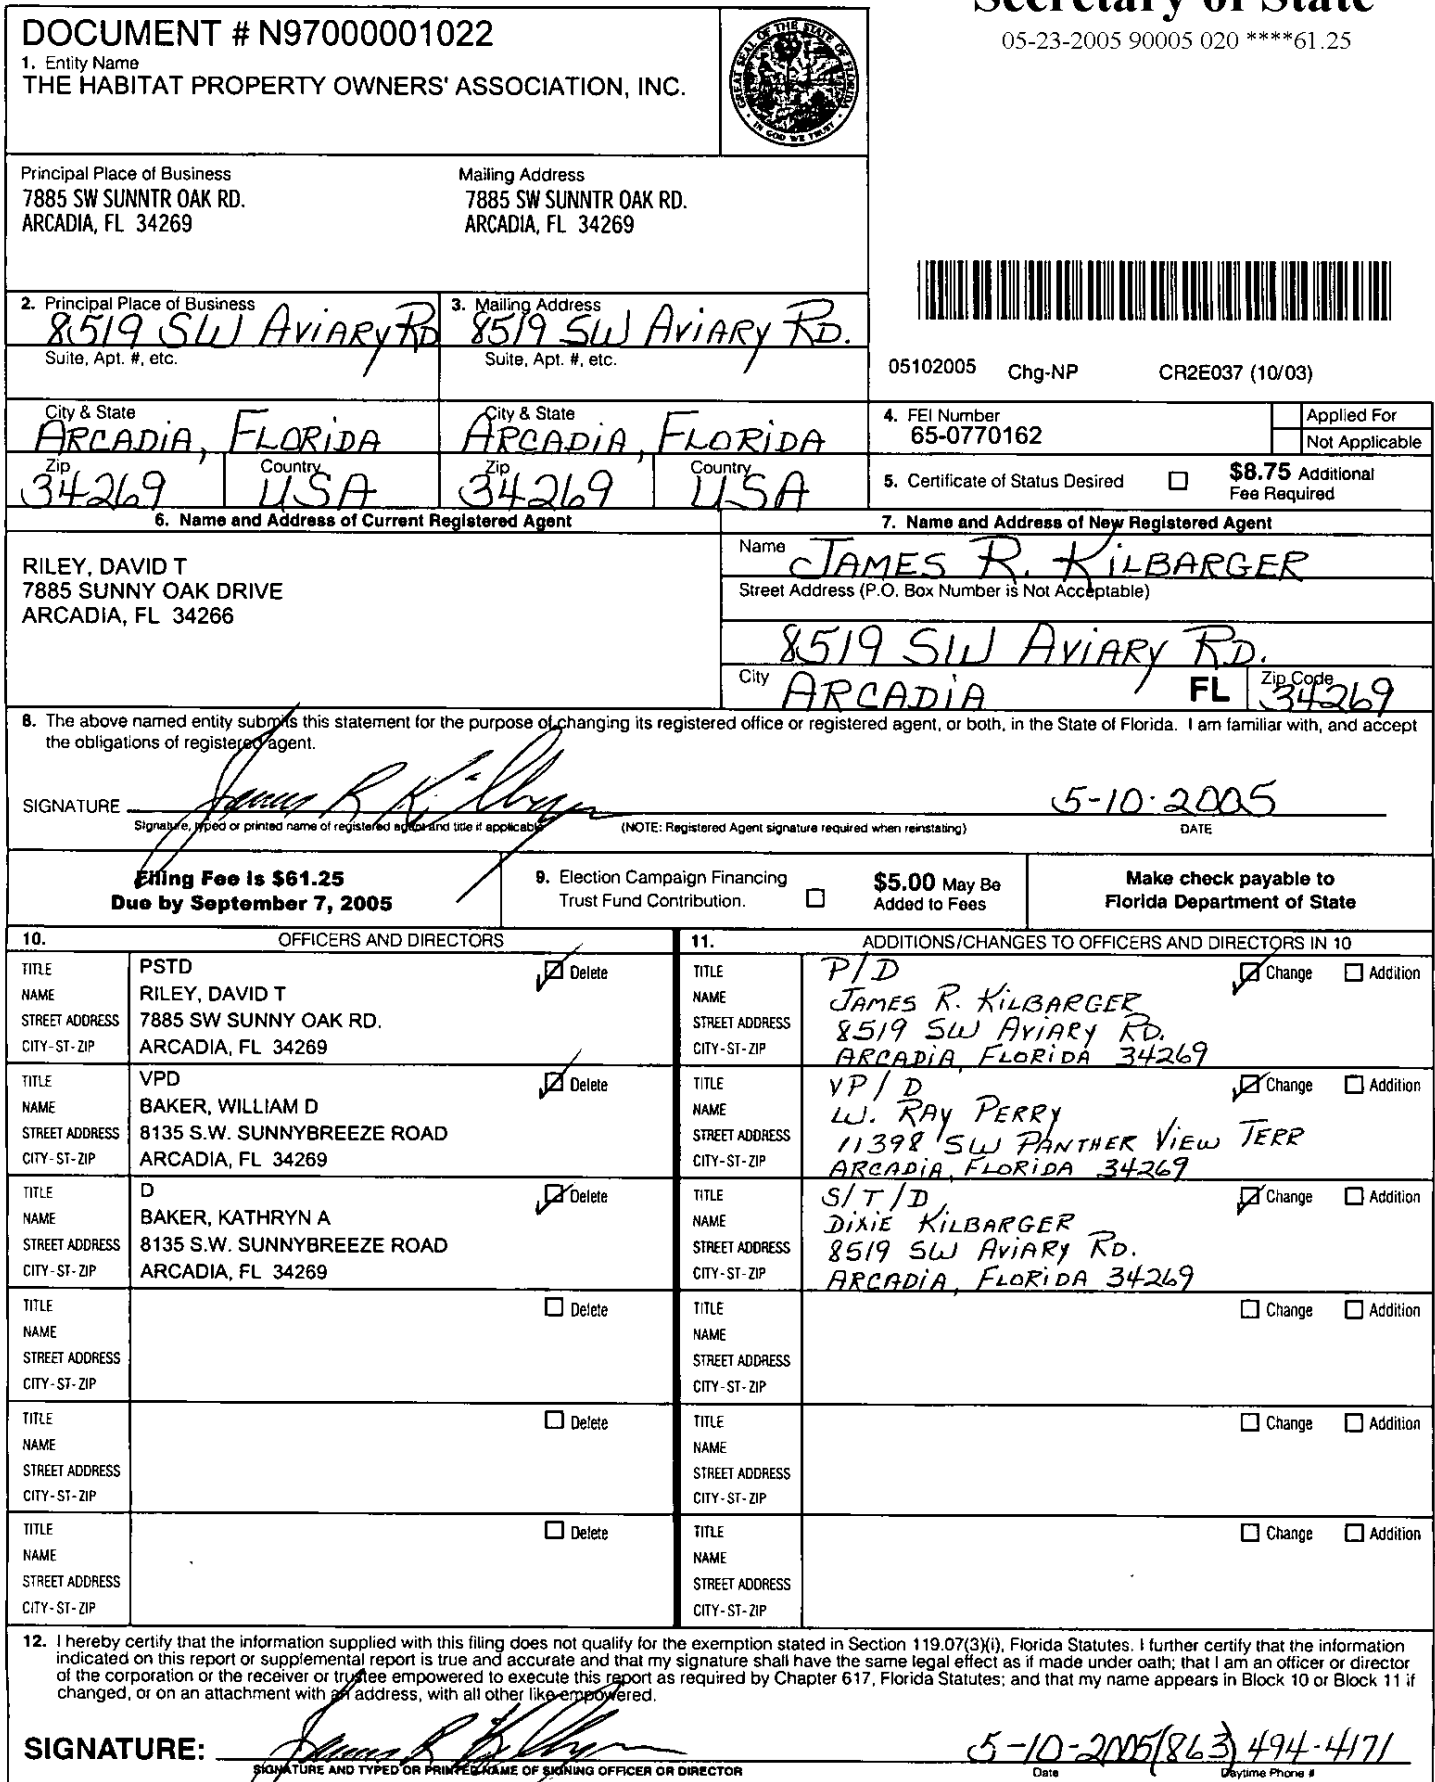 Secretary of State
05-23-2005 90005 020 ****61.25
DOCUMENT # N97000001022
1. Entity Name
THE HABITAT PROPERTY OWNERS' ASSOCIATION, INC.
GREAT SEAL OF THE STATE OF FLORIDA
IN GOD WE TRUST
Principal Place of Business
7885 SW SUNNTR OAK RD.
ARCADIA, FL 34269
Mailing Address
7885 SW SUNNTR OAK RD.
ARCADIA, FL 34269
2. Principal Place of Business
8519 SW AVIARY RD
Suite, Apt. #, etc.
3. Mailing Address
8519 SW AVIARY RD.
Suite, Apt. #, etc.
05102005 Chg-NP CR2E037 (10/03)
City & State
ARCADIA, FLORIDA
City & State
ARCADIA, FLORIDA
Zip
34269
Country
USA
Zip
34269
Country
USA
4. FEI Number
65-0770162
Applied For
Not Applicable
5. Certificate of Status Desired
$8.75 Additional
Fee Required
6. Name and Address of Current Registered Agent
RILEY, DAVID T
7885 SUNNY OAK DRIVE
ARCADIA, FL 34266
7. Name and Address of New Registered Agent
Name JAMES R. KILBARGER
Street Address (P.O. Box Number is Not Acceptable)
8519 SW AVIARY RD.
City ARCADIA FL Zip Code 34269
8. The above named entity submits this statement for the purpose of changing its registered office or registered agent, or both, in the State of Florida. I am familiar with, and accept
the obligations of registered agent.
SIGNATURE James R Kilbarger 5-10-2005
Signature, typed or printed name of registered agent and title if applicable (NOTE: Registered Agent signature required when reinstating) DATE
Filing Fee is $61.25
Due by September 7, 2005
9. Election Campaign Financing
Trust Fund Contribution.
$5.00 May Be
Added to Fees
Make check payable to
Florida Department of State
10. OFFICERS AND DIRECTORS
TITLE PSTD Delete
NAME RILEY, DAVID T
STREET ADDRESS 7885 SW SUNNY OAK RD.
CITY-ST-ZIP ARCADIA, FL 34269
TITLE VPD Delete
NAME BAKER, WILLIAM D
STREET ADDRESS 8135 S.W. SUNNYBREEZE ROAD
CITY-ST-ZIP ARCADIA, FL 34269
TITLE D Delete
NAME BAKER, KATHRYN A
STREET ADDRESS 8135 S.W. SUNNYBREEZE ROAD
CITY-ST-ZIP ARCADIA, FL 34269
TITLE Delete
NAME
STREET ADDRESS
CITY-ST-ZIP
TITLE Delete
NAME
STREET ADDRESS
CITY-ST-ZIP
TITLE Delete
NAME
STREET ADDRESS
CITY-ST-ZIP
11. ADDITIONS/CHANGES TO OFFICERS AND DIRECTORS IN 10
TITLE P/D Change Addition
NAME JAMES R. KILBARGER
STREET ADDRESS 8519 SW AVIARY RD.
CITY-ST-ZIP ARCADIA, FLORIDA 34269
TITLE VP/D Change Addition
NAME W. RAY PERRY
STREET ADDRESS 11398 SW PANTHER VIEW TERR
CITY-ST-ZIP ARCADIA, FLORIDA 34269
TITLE S/T/D Change Addition
NAME DIXIE KILBARGER
STREET ADDRESS 8519 SW AVIARY RD.
CITY-ST-ZIP ARCADIA, FLORIDA 34269
TITLE Change Addition
NAME
STREET ADDRESS
CITY-ST-ZIP
TITLE Change Addition
NAME
STREET ADDRESS
CITY-ST-ZIP
TITLE Change Addition
NAME
STREET ADDRESS
CITY-ST-ZIP
12. I hereby certify that the information supplied with this filing does not qualify for the exemption stated in Section 119.07(3)(i), Florida Statutes. I further certify that the information
indicated on this report or supplemental report is true and accurate and that my signature shall have the same legal effect as if made under oath; that I am an officer or director
of the corporation or the receiver or trustee empowered to execute this report as required by Chapter 617, Florida Statutes; and that my name appears in Block 10 or Block 11 if
changed, or on an attachment with an address, with all other like empowered.
SIGNATURE: James R Kilbarger 5-10-2005 (863) 494-4171
SIGNATURE AND TYPED OR PRINTED NAME OF SIGNING OFFICER OR DIRECTOR Date Daytime Phone #